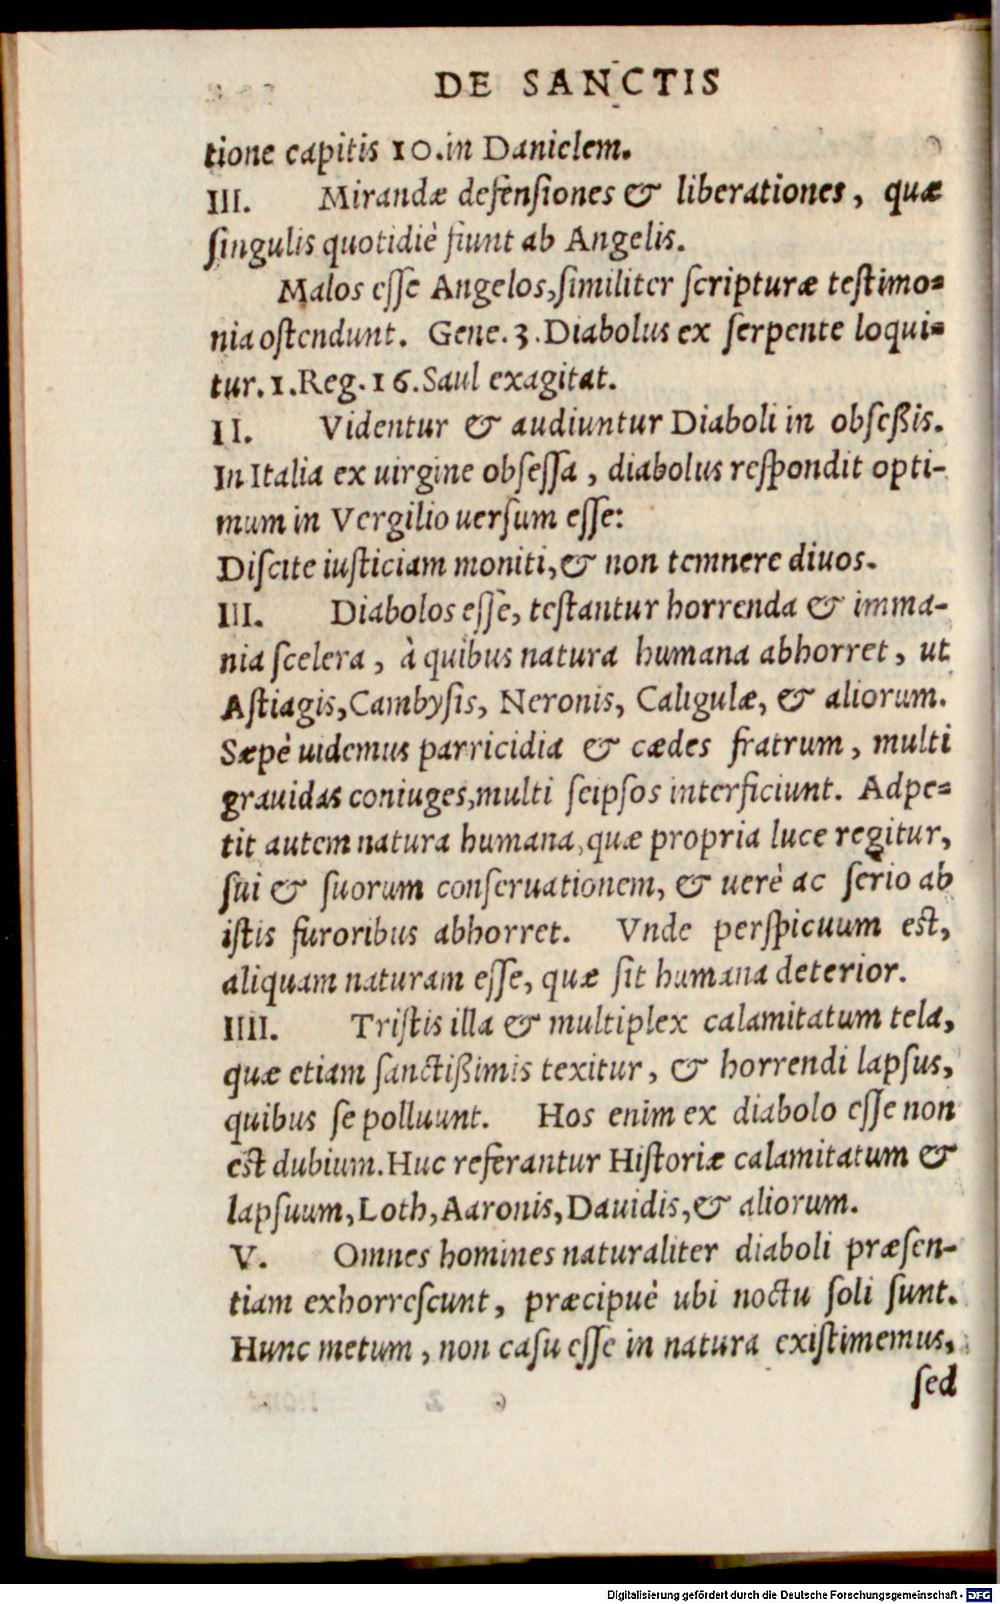 DE SANCTIS
tione capitis 10.in Danielem.
III. Mirandæ defensiones & liberationes, quæ
singulis quotidiè fiunt ab Angelis.
Malos esse Angelos,similiter scripturæ testimo=
nia ostendunt. Gene.3.Diabolus ex serpente loqui=
tur.1.Reg.16.Saul exagitat.
II. Videntur & audiuntur Diaboli in obseßis.
In Italia ex uirgine obsessa, diabolus respondit opti-
mum in Vergilio uersum esse:
Discite iusticiam moniti,& non temnere diuos.
III. Diabolos esse, testantur horrenda & imma-
nia scelera, à quibus natura humana abhorret, ut
Astiagis,Cambysis, Neronis, Caligulæ, & aliorum.
Sæpè uidemus parricidia & cædes fratrum, multi
grauidas coniuges,multi seipsos interficiunt. Adpe=
tit autem natura humana,quæ propria luce regitur,
sui & suorum conseruationem, & uerè ac serio ab
istis furoribus abhorret. Vnde perspicuum est,
aliquam naturam esse, quæ sit humana deterior.
IIII. Tristis illa & multiplex calamitatum tela,
quæ etiam sanctißimis texitur, & horrendi lapsus,
quibus se polluunt. Hos enim ex diabolo esse non
est dubium.Huc referantur Historiæ calamitatum &
lapsuum,Loth,Aaronis,Dauidis,& aliorum.
V. Omnes homines naturaliter diaboli præsen-
tiam exhorrescunt, præcipuè ubi noctu soli sunt.
Hunc metum, non casu esse in natura existimemus,
sed
Digitalisierung gefördert durch die Deutsche Forschungsgemeinschaft - DFG